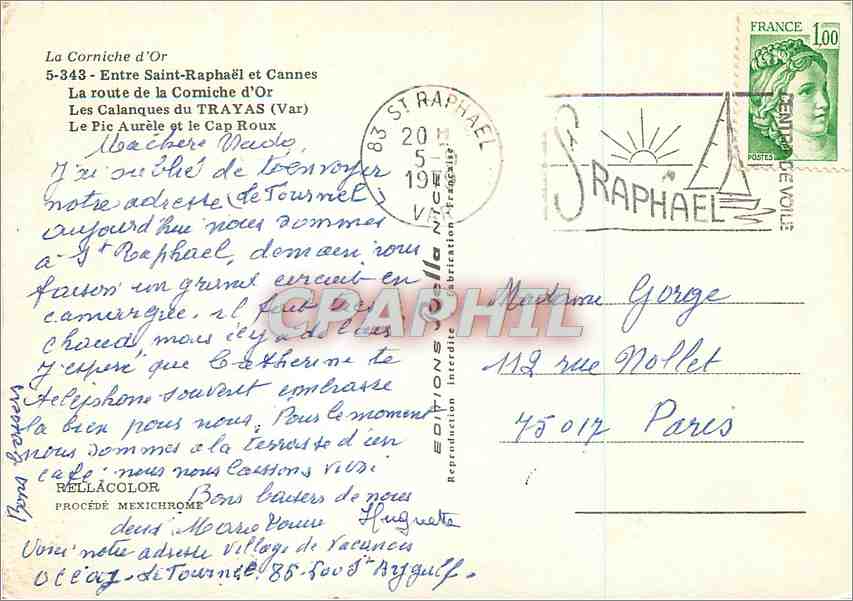 La Corniche d'Or
5-343 - Entre Saint-Raphaël et Cannes
La route de la Corniche d'Or
Les Calanques du TRAYAS (Var)
Le Pic Aurèle et le Cap Roux
Ma chère Dado,
J'ai oublié de t'envoyer
notre adresse (Le Tournel)
aujourd'hui nous sommes
a St Raphael, demain nous
faison un grand circuit en
camargue, il fait
chaud mais il y a de l'air
J'espère que Catherine te
téléphone souvent embrasse
la bien pour nous. Pour le moment
nous sommes a la terrasse d'un
café nous nous laissons vivre
Bons baisers de nous
deux Marie Huguette
Voici notre adresse Village de Vacances
Le Tournel. 83-500 St Aygulf.
Bons baisers
RELLACOLOR
PROCÉDÉ MEXICHROME
EDITIONS
Reproduction interdite Fabrication Française
83 ST RAPHAEL
20 H
5-
19
VAR
ST RAPHAEL
CENTRE DE VOILE
FRANCE 1,00
POSTES
CPAPHIL
Madame Gorge
112 rue Nollet
75017 Paris